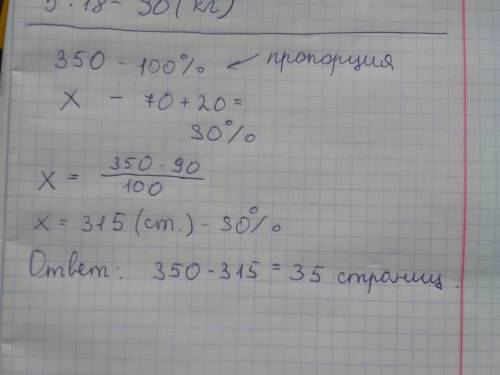 5 · 18 - 90 (кг)
350 - 100% ← пропорция
х - 70 + 20 =
90%
х = 350 · 90 / 100
х = 315 (ст.) - 90%
Ответ: 350 - 315 = 35 страниц.